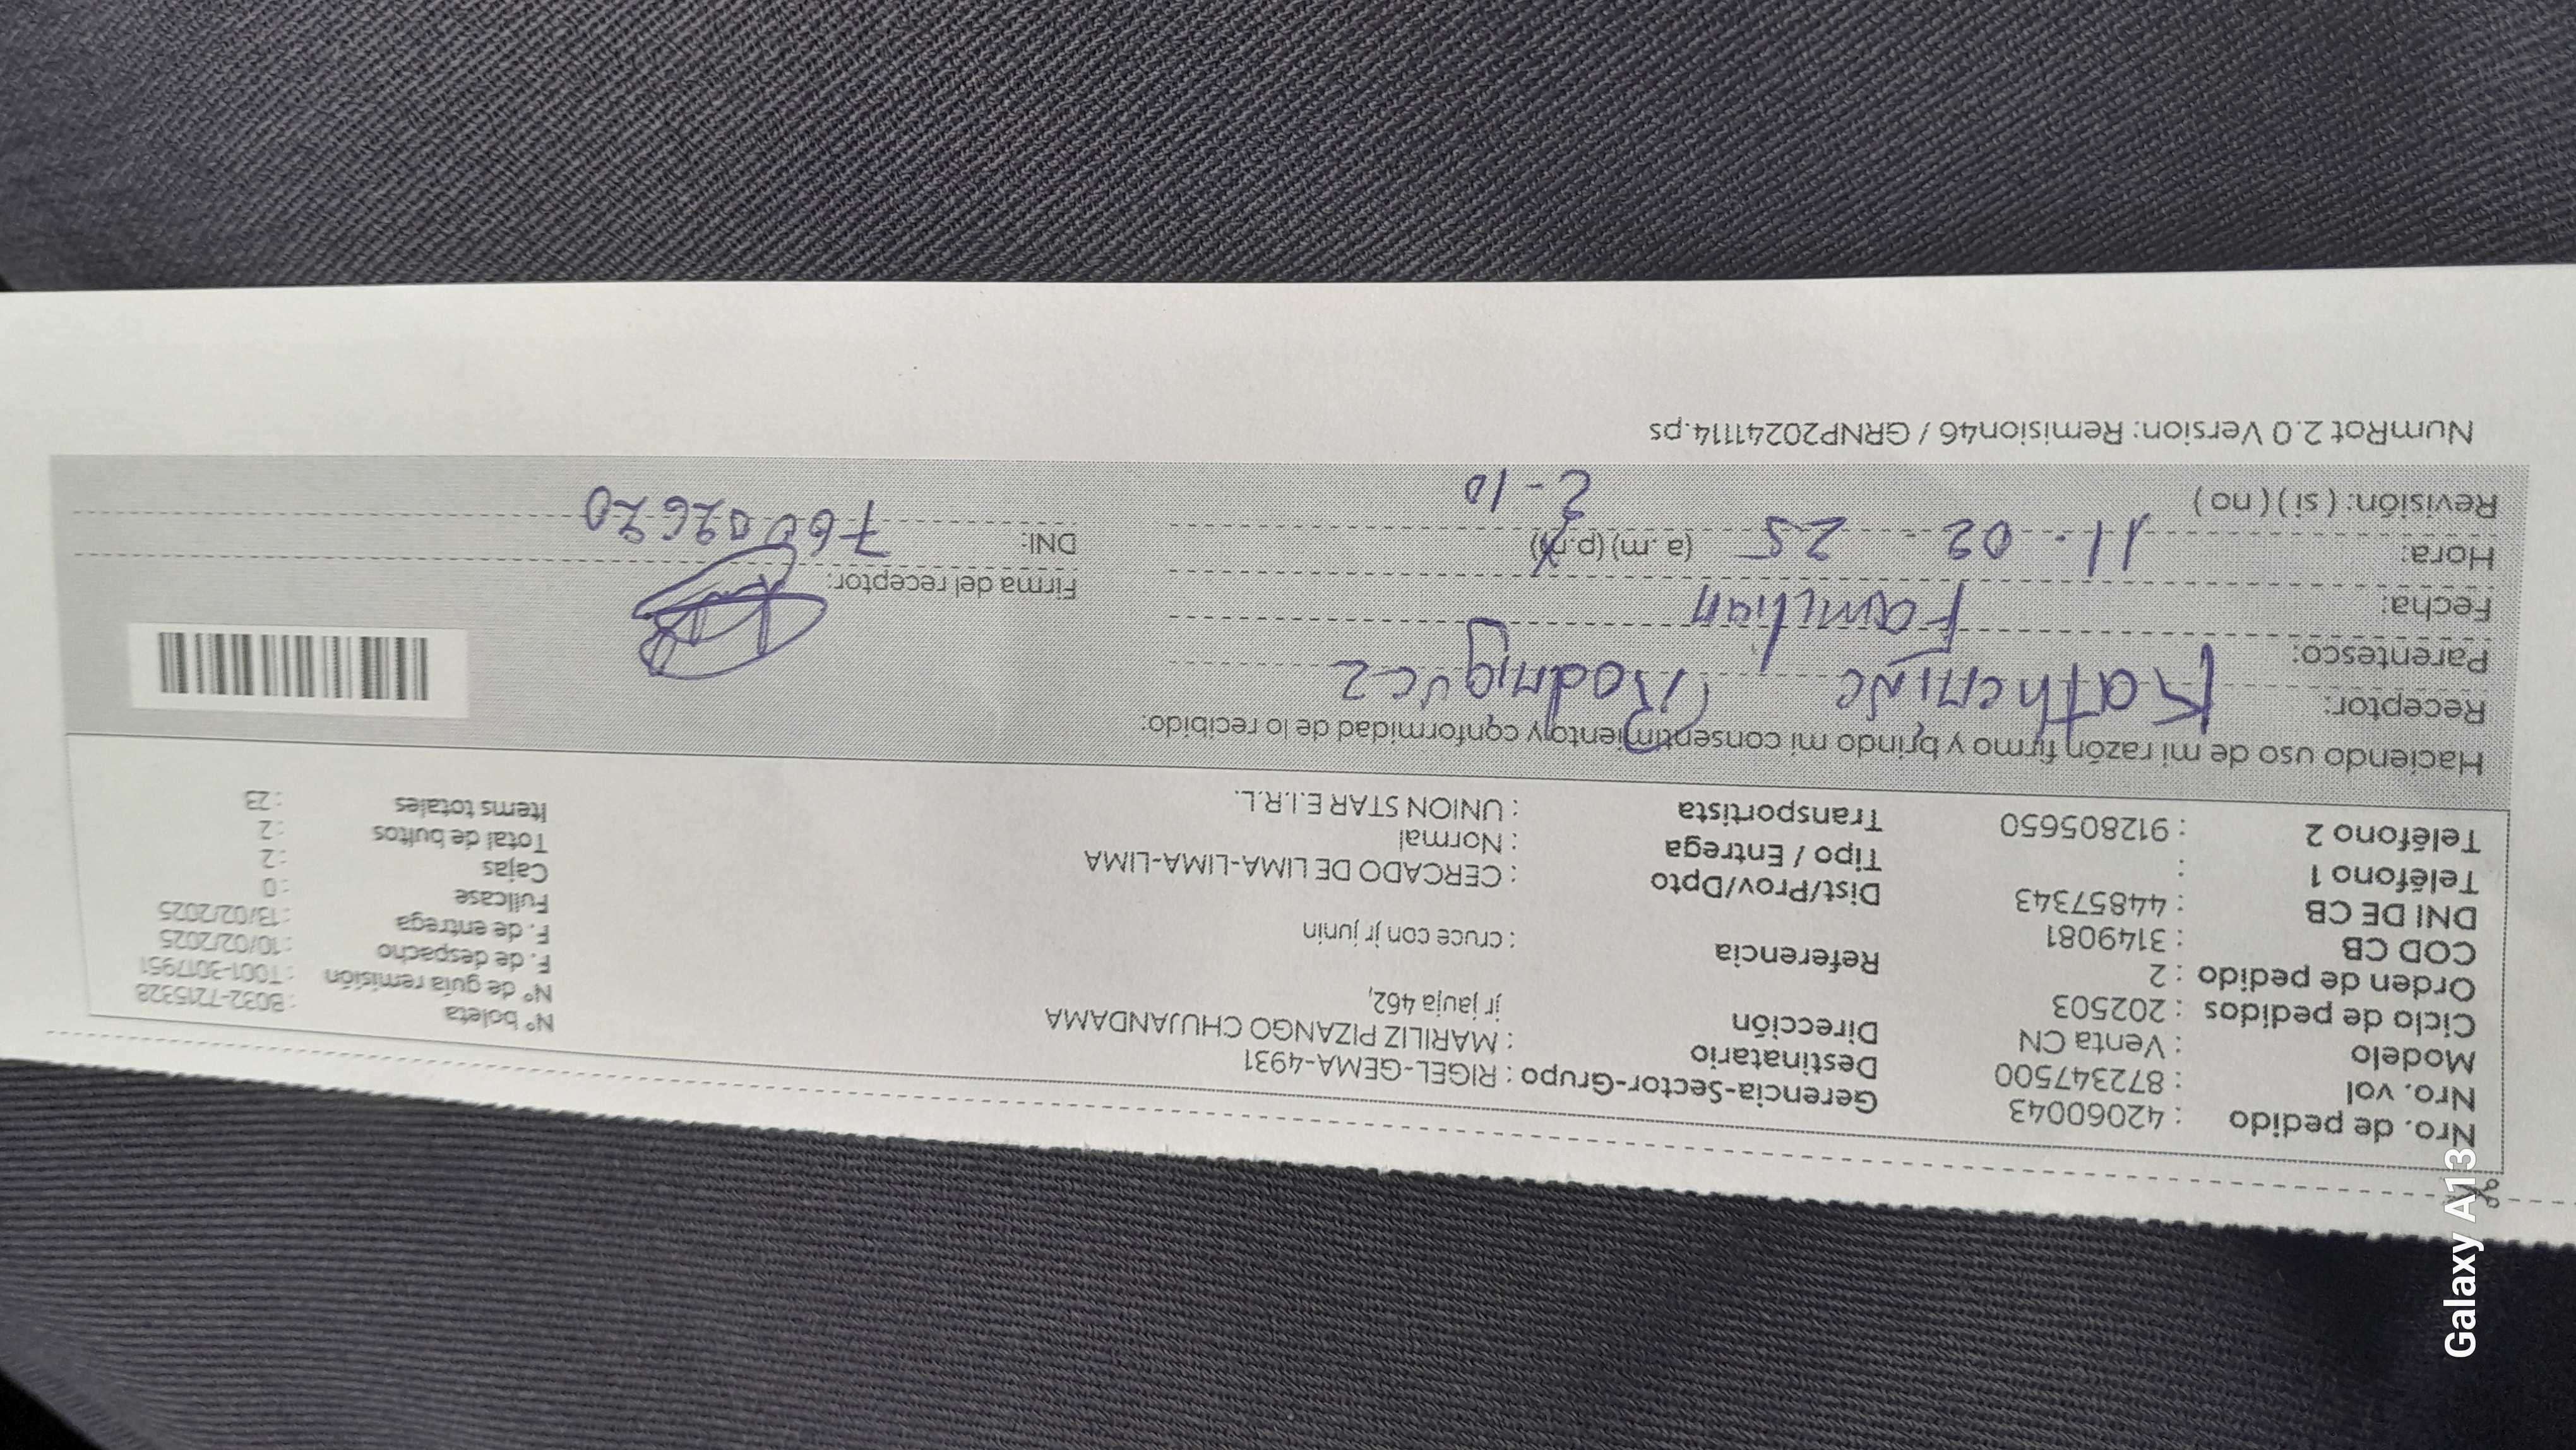 Nro. de pedido : 42060043
Nro. vol : 872347500
Modelo : Venta CN
Ciclo de pedidos : 202503
Orden de pedido : 2
COD CB : 3149081
DNI DE CB : 44857343
Teléfono 1 :
Teléfono 2 : 912805650
Gerencia-Sector-Grupo : RIGEL-GEMA-4931
Destinatario : MARILIZ PIZANGO CHUJANDAMA
Dirección jr jauja 462,
Referencia : cruce con jr junin
Dist/Prov/Dpto : CERCADO DE LIMA-LIMA-LIMA
Tipo / Entrega : Normal
Transportista : UNION STAR E.I.R.L.
N° boleta : B032-7215328
N° de guía remisión : T001-3017951
F. de despacho : 10/02/2025
F. de entrega : 13/02/2025
Fullcase : 0
Cajas : 2
Total de bultos : 2
Items totales : 23
Haciendo uso de mi razón firmo y brindo mi consentimiento y conformidad de lo recibido:
Receptor: Katherine Rodriguez
Parentesco: Familiar
Fecha:
Hora: 11-02-25 (a.m) (p.m)
Revisión: (si) (no) 2-10
Firma del receptor:
DNI:
NumRot 2.0 Version: Remision46 / GRNP20241114.ps
Galaxy A13